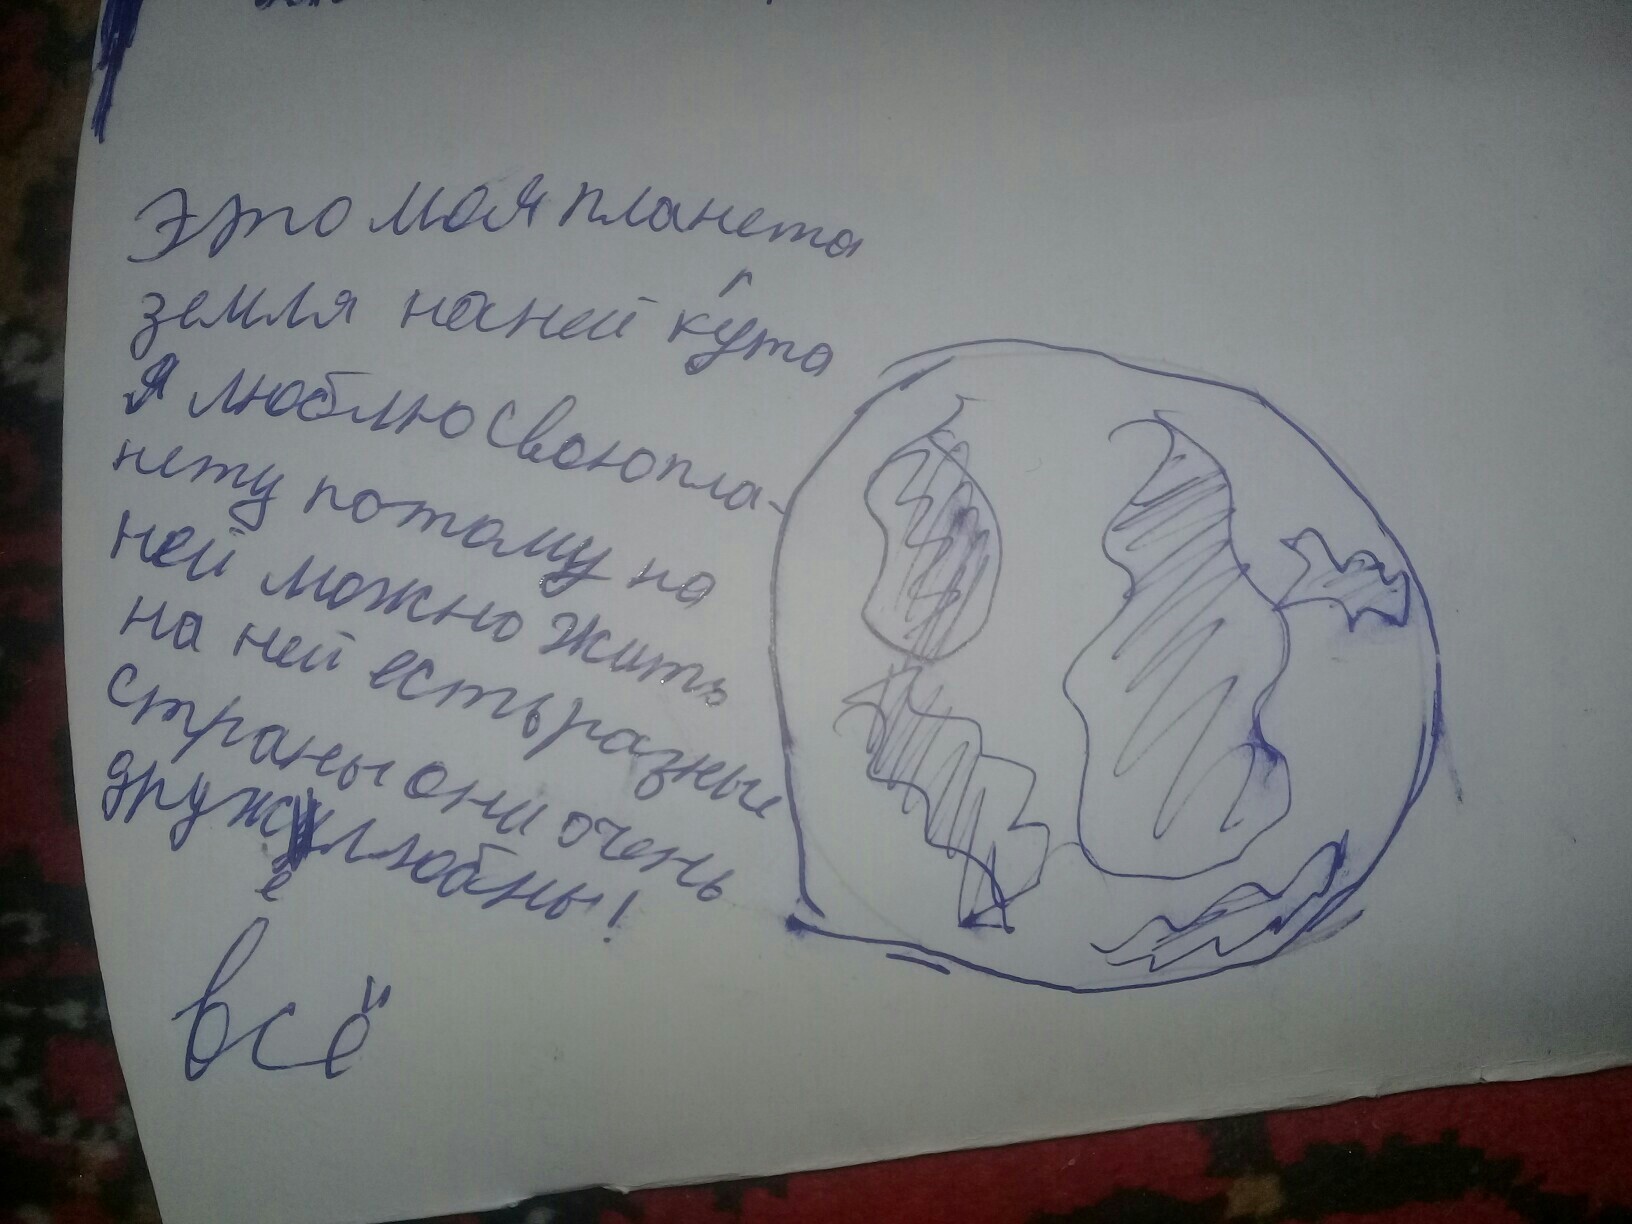 это моя планета
земля на ней крута
я люблю свою пла-
нету потому на
ней можно жить
на ней есть разные
страны они очень
дружелюбны!
всё